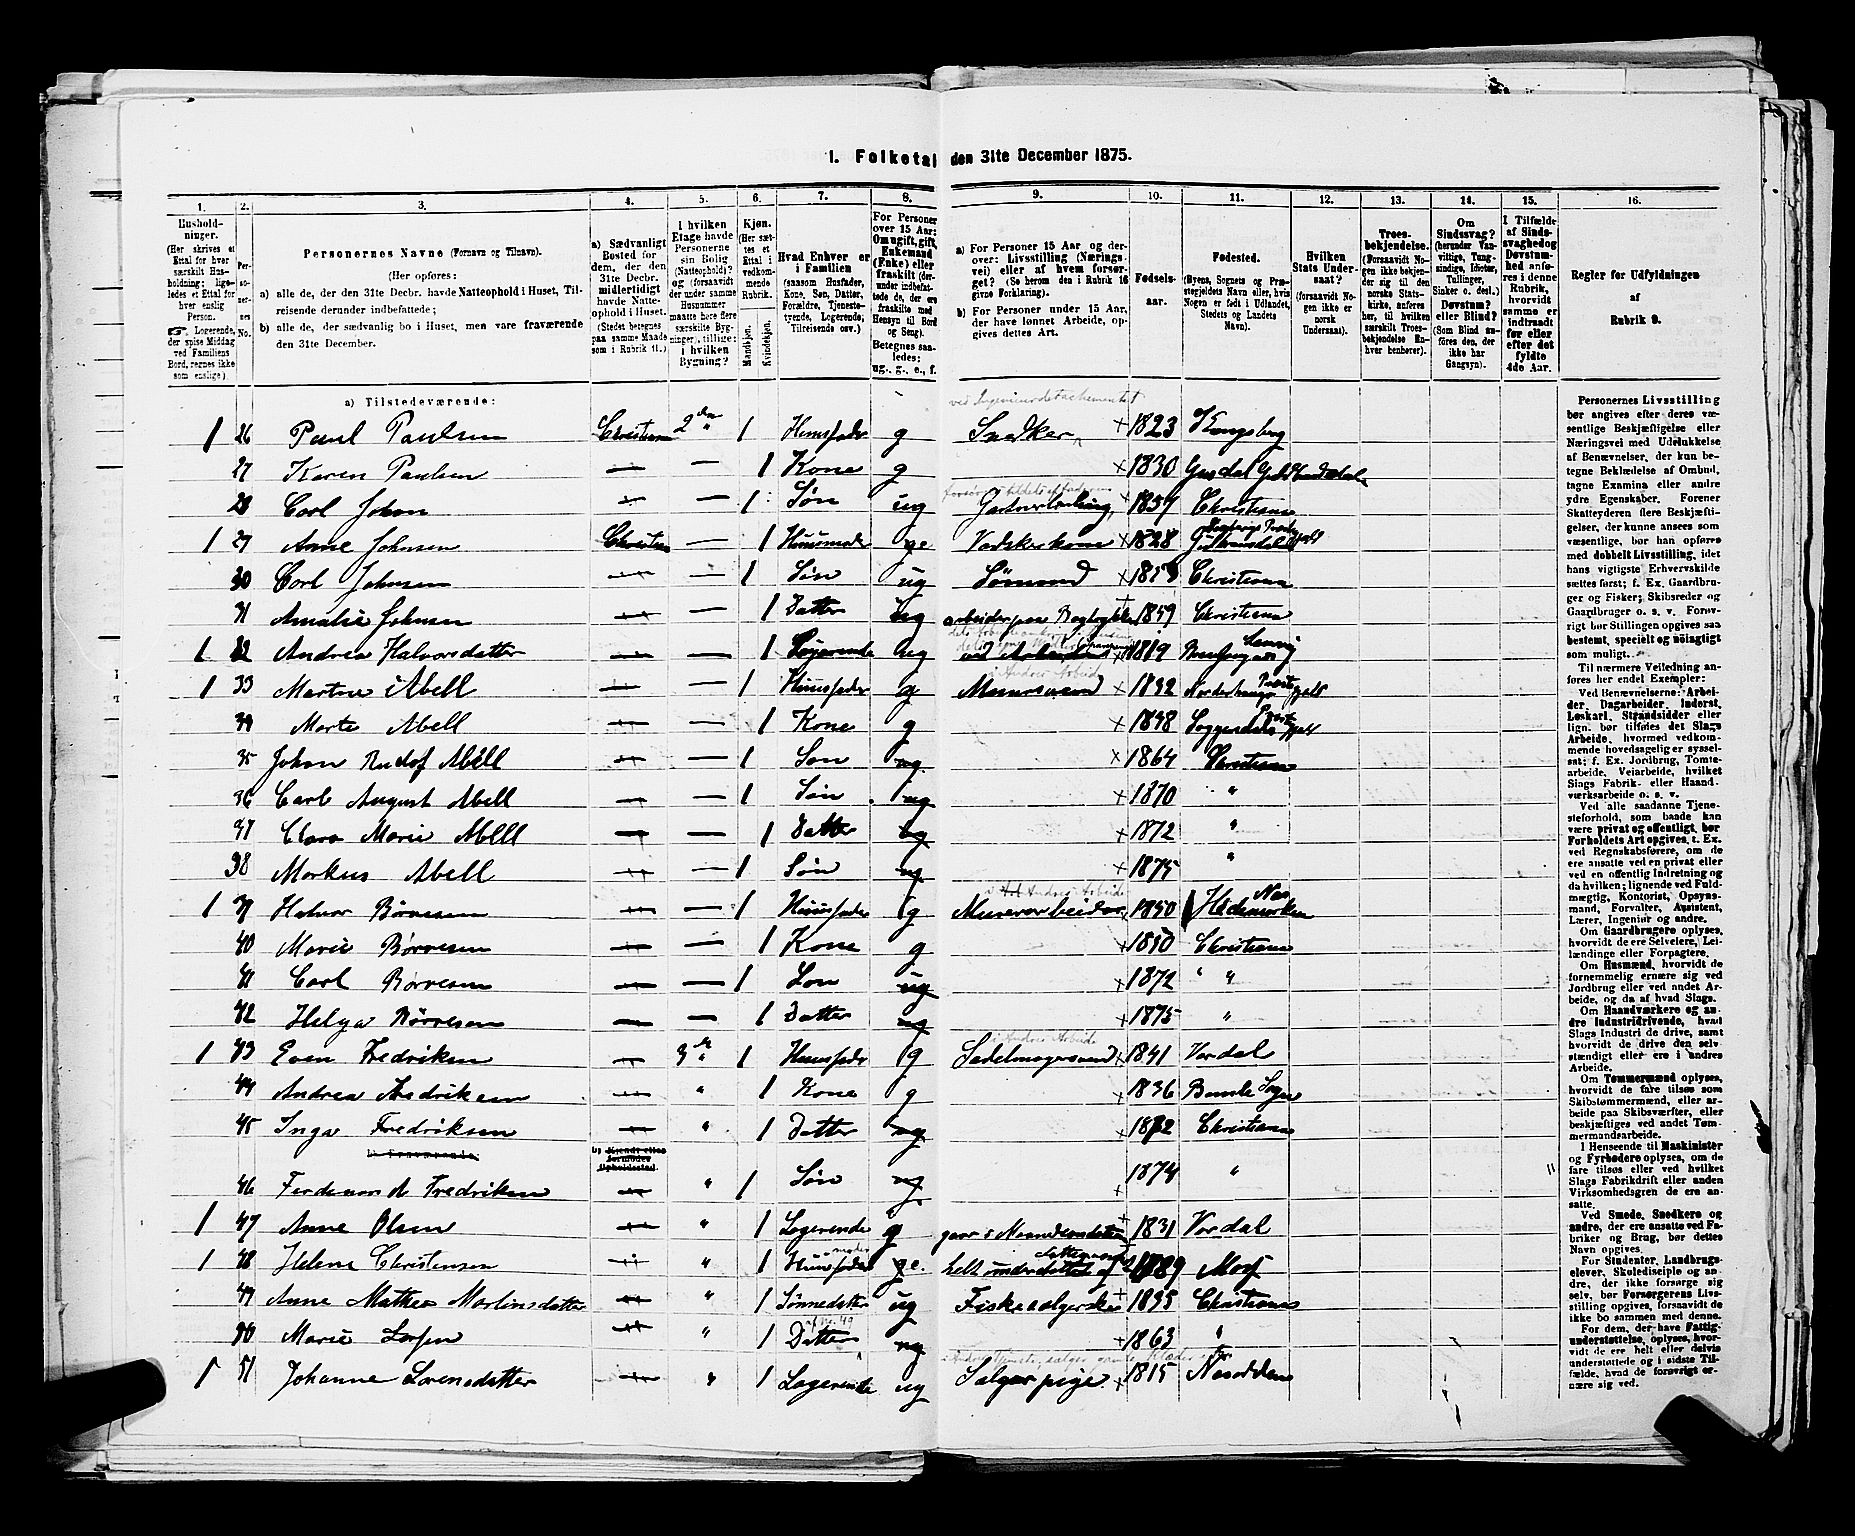 1. Folketal den 31te December 1875.
1. 2. 3. 4. 5. 6. 7. 8. 9. 10. 11. 12. 13. 14. 15. 16.
Husholdninger. (Her skrives et Ettal for hver særskilt Husholdning; ligeledes et Ettal for hver enslig Person. Logerende, der spise Middag ved Familiens Bord, regnes ikke som enslige).
Personernes No.
Personernes Navne (Fornavn og Tilnavn).
(Her opføres:
a) alle de, der den 31te Decbr. havde Natteophold i Huset, Tilreisende derunder indbefattede;
b) alle de, der sædvanlig bo i Huset, men vare fraværende den 31te December.
a) Sædvanligt Bosted for dem, der den 31te Decbr. midlertidigt havde Natteophold i Huset. (Stedet betegnes paa samme Maade som i Rubrik 11.)
I hvilken Etage havde Personerne sin Bolig (Natteophold)? og (forsaavidt der under samme Husnummer maatte høre flere særskilte Bygninger), tillige: i hvilken Bygning?
Kjøn. (Her sættes et Ettal i vedkommende Rubrik. Mandkjøn. Kvindekjøn.
Hvad Enhver er i Familien (saasom Husfader, Kone, Søn, Datter, Forældre, Tjenestetyende, Logerende, Tilreisende osv.)
For Personer over 15 Aar: Om ugift, gift, Enkemand (Enke) eller fraskilt (derunder indbefattede de, der ere fraskilte med Hensyn til Bord og Seng). Betegnes saaledes: ug., g., e., f.
a) For Personer 15 Aar og derover: Livsstilling (Næringsvei) eller af hvem forsørget? (Se herom den i Rubrik 16 givne Forklaring).
b) For Personer under 15 Aar, der have lønnet Arbeide, opgives dettes Art.
Fødselsaar.
Fødested. (Byens, Sognets og Præstegjeldets Navn eller, hvis Nogen er født i Udlandet, Stedets og Landets Navn).
Hvilken Stats Undersaat? (forsaavidt Nogen ikke er norsk Undersaat).
Troesbekjendelse. (Forsaavidt Nogen ikke bekjender sig til den norske Statskirke, anføres her, til hvilket særskilt Troesbekjendelse Enhver henhører).
Om Sindssvag? (herunder Vanvittige, Tungsindige, Idioter, Tullinger, Sinker o. desl.) Døvstum? eller Blind? (Som Blind anføres den, der ikke har Gangsyn).
I Tilfælde af Sindssvaghed og Døvstumhed anføres i denne Rubrik, hvorvidt samme er indtraadt før eller efter det fyldte 4de Aar.
Regler for Udfyldningen af Rubrik 9.
a) Tilstedeværende:
ved Ingenieurdetachementet
1 26 Paul Paulsen Christiania 2den 1 Huusfader g Snedker 1823 Kongsberg
27 Karen Paulsen 1 Kone g 1830 Gusdal Guldbrandsdalen
28 Carl Johan 1 Søn ug 1857 Christiania
1 29 Anne Johnsen Christiania 1 Huusmoder e Vadskerkone 1828 Gulbrandsdalen
30 Carl Johnsen 1 Søn ug Sømand Christiania
31 Amalie Johnsen 1 Datter ug arbeider paa 1859 Christiania
1 32 Andrea Halvorsdatter 1 Logerende ug 1819
1 33 Martin Abell 1 Huusfader g Muursvend 1832 Norderhaugs Præstegjeld
34 Marte Abell 1 Kone g 1838 Præstegjeld
35 Johan Rudolf Abell 1 Søn ug 1864 Christiania
36 Carl August Abell 1 Søn ug 1870 "
37 Clara Marie Abell 1 Datter ug 1872 "
38 Markus Abell 1 Søn ug 1875 "
i Andres Arbeide
1 39 Halvor Børresen 1 Huusfader g Murerarbeider 1850 Nes Hedemarken
40 Marie Børresen 1 Kone g 1850 Christiania
41 Carl Børresen 1 Søn ug 1872 " "
42 Helga Børresen 1 Datter ug 1875 "
i Andres Arbeide
1 43 Even Fredriksen 3de 1 Huusfader g Sadelmagersvend 1841 Vardal
44 Andrea Fredriksen " 1 Kone g 1836 Bamle Sogn
45 Inga Fredriksen " 1 Datter ug 1872 Christiania
b) Fraværende: b) Kjendt eller formodet Opholdssted.
46 Ferdinand Fredriksen " 1 Søn ug 1874 "
1 47 Anne Olsen " 1 Logerende g 1831 Vardal
1 48 Helene Christensen " 1 Huusmoder e. helt understøttet af Moss
49 Anne Mathea Martinsdatter " 1 Sønnedatter ug Fiskesælgerske 1835 Christiania
50 Marie Larsen " 1 Datter af No. 49 ug 1863 "
1 51 Johanne Lorensdatter " 1 Logerende ug Sælgerpige 1815 Nesodden
Personernes Livsstilling bør angives efter deres væsentlige Beskjæftigelse eller Næringsvei med Udelukkelse af Benævnelser, der kun betegne Beklædelse af Ombud, tagne Examina eller andre ydre Egenskaber. Forener Skatteyderen flere Beskjæftigelser, der kunne ansees som væsentlige, bør han opføres med dobbelt Livsstilling, idet hans vigtigste Erhvervskilde sættes først; f. Ex. Gaardbruger og Fisker; Skibsreder og Gaardbruger o. s. v. Forøvrigt bør Stillingen opgives saa bestemt, specielt og nøiagtigt som muligt.
Til nærmere Veiledning anføres her endel Exempler:
Ved Benævnelserne: Arbeider, Dagarbeider, Inderst, Løskarl, Strandsidder eller lign. bør tilføies det Slags Arbeide, hvormed vedkommende hovedsagelig er sysselsat; f. Ex. Jordbrug, Tomtearbeide, Veiarbeide, hvilket Slags Fabrik- eller Haandværksarbeide o. s. v.
Ved alle saadanne Tjenesteforhold, som baade kan være privat og offentligt, bør Forholdets Art opgives, t. Ex. ved Regnskabsførere, om de ere ansatte ved en privat eller ved en offentlig Indretning og da hvilken; lignende ved Fuldmægtig, Kontorist, Opsynsmand, Forvalter, Assistent, Lærer, Ingeniør og andre.
Om Gaardbrugere oplyses, hvorvidt de ere Selveiere, Leilændinge eller Forpagtere.
Om Husmænd, hvorvidt de fornemmelig ernære sig ved Jordbrug eller ved andet Arbeide, og da af hvad Slags.
Om Haandværkere og andre Industridrivende, hvad Slags Industri de drive, samt hvorvidt de drive den selvstændigt eller ere i andres Arbeide.
Om Tømmermænd oplyses, hvorvidt de fare tilsøs som Skibstømmermænd, eller arbeide paa Skibsværfter, eller beskjæftiges ved andet Tømmermandsarbeide.
I Henseende til Maskinister og Fyrbødere oplyses, om de fare tilsøs eller ved hvilket Slags Fabrikdrift eller anden Virksomhedsgren de ere ansatte.
Ved Smede, Snedkere og andre, der ere ansatte ved Fabriker og Brug, bør dettes Navn opgives.
For Studenter, Landbrugselever, Skoledisciple og andre, der ikke forsørge sig selv, bør Forsørgerens Livsstilling opgives, forsaavidt de ikke bo sammen med denne.
For dem, der have Fattigunderstøttelse, oplyses, hvorvidt de ere helt eller delvis understøttede og i sidste Tilfælde, hvad de forøvrigt ernære sig ved.